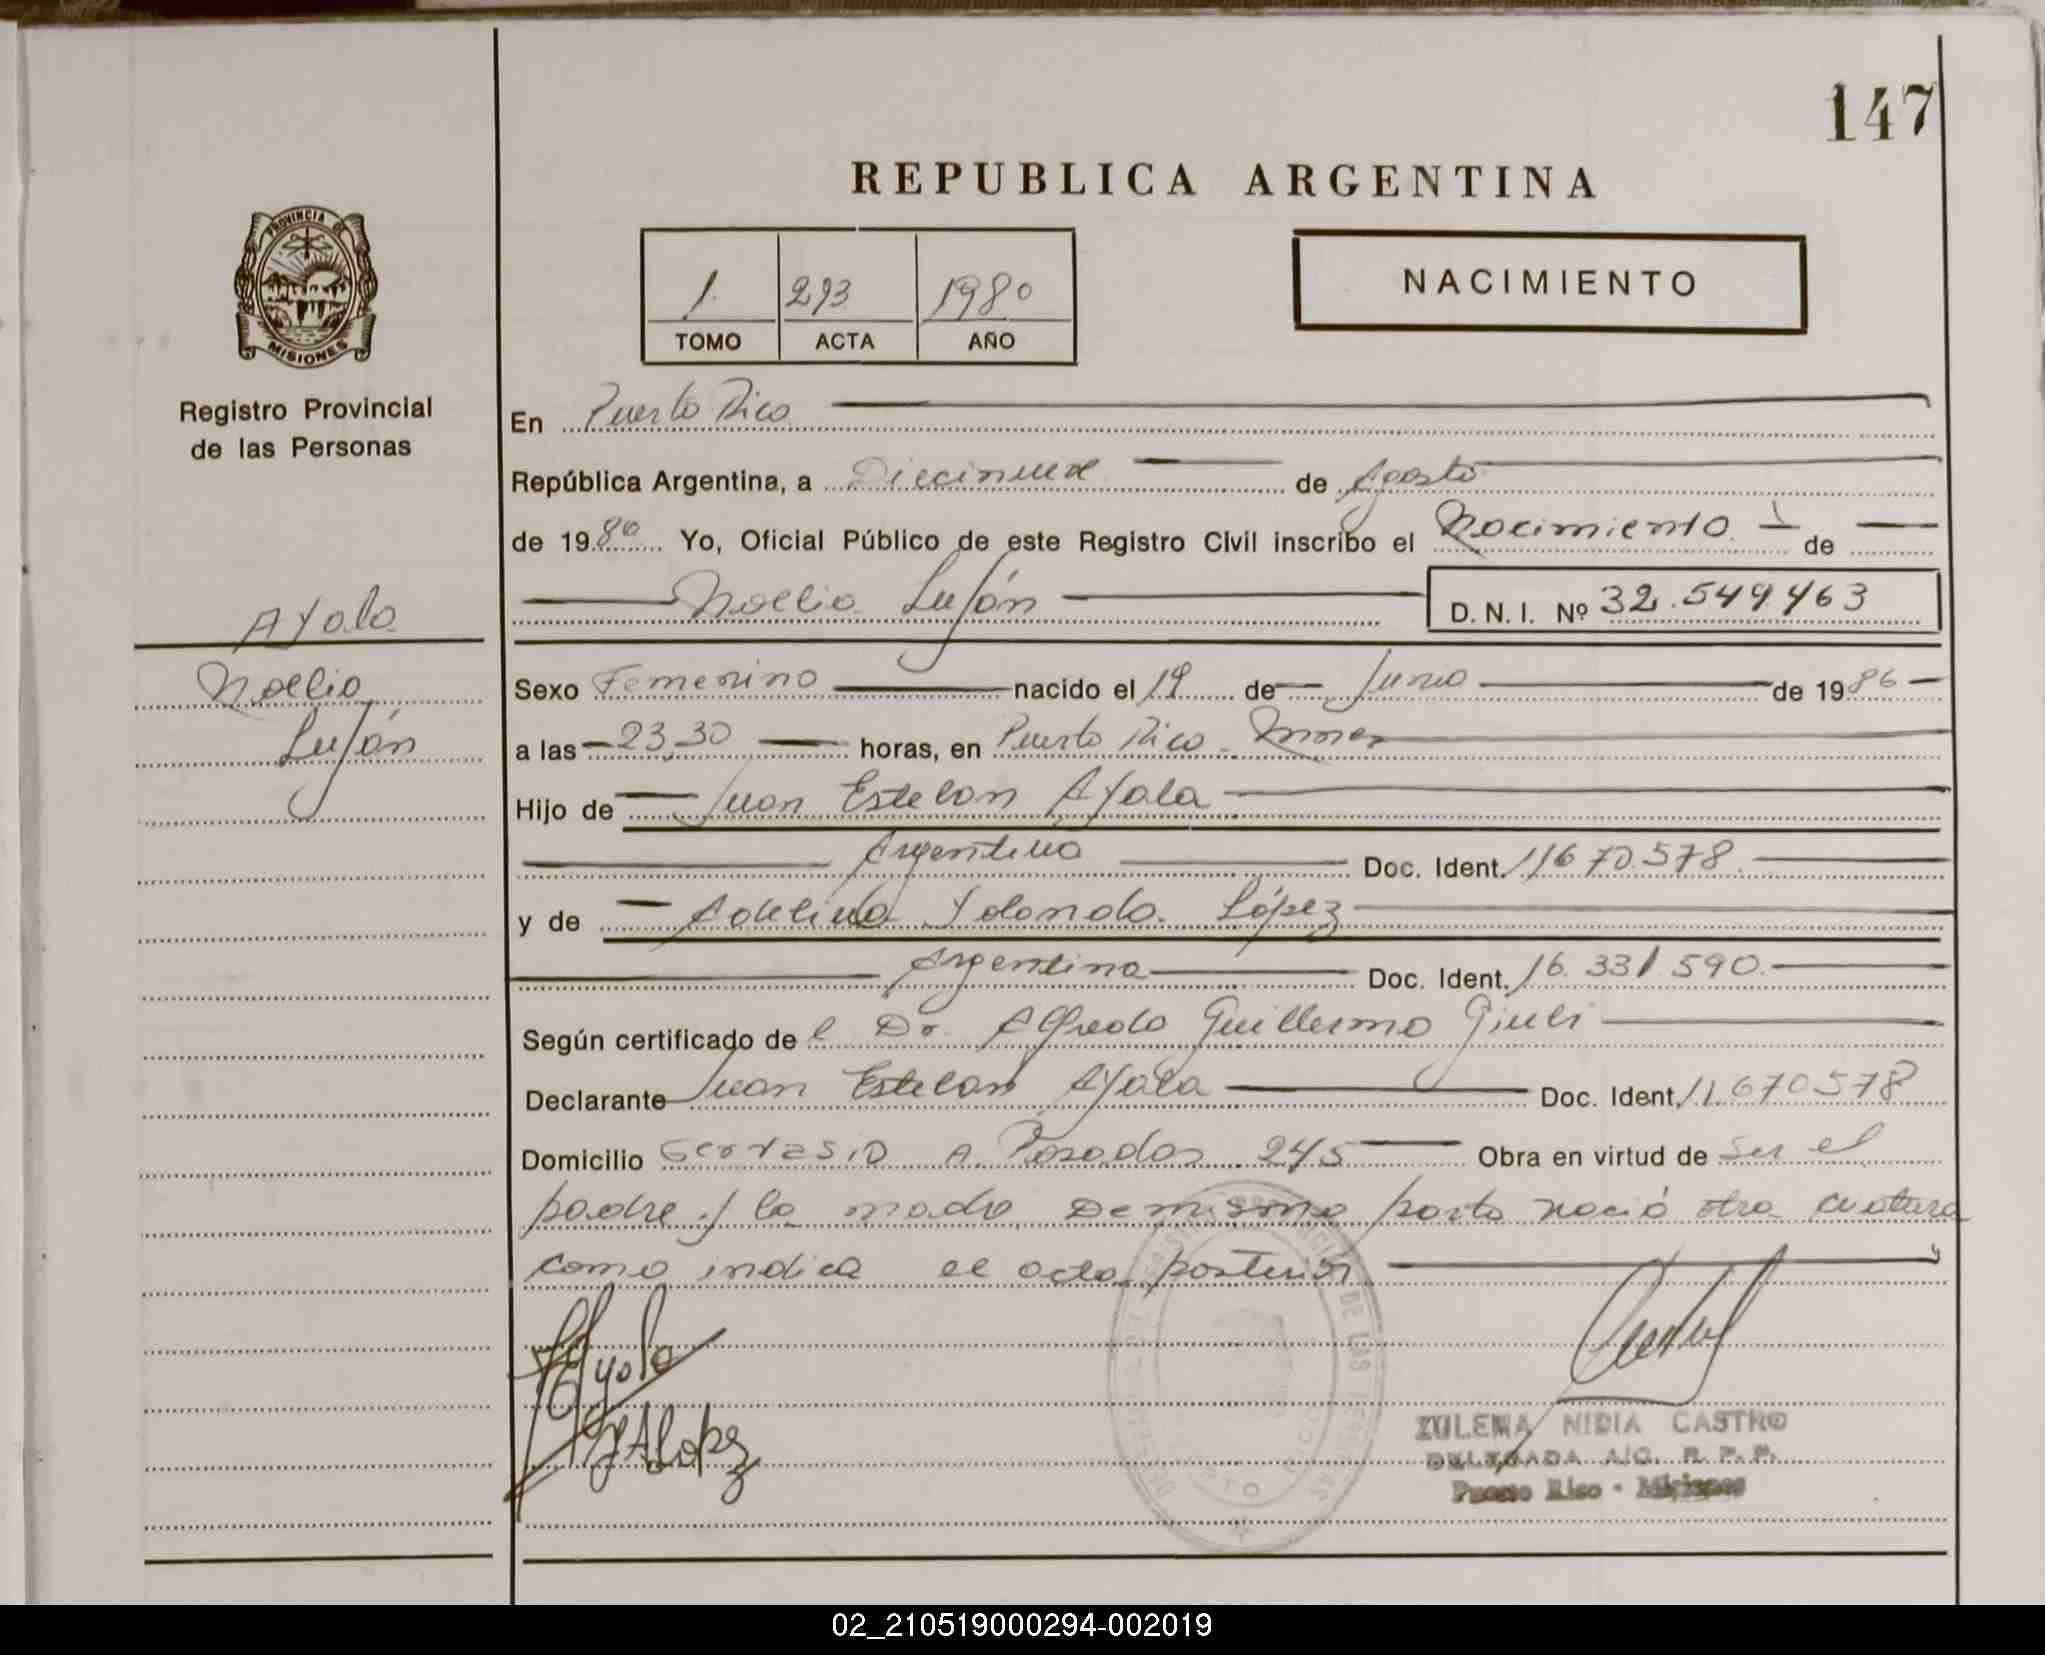 147
REPUBLICA ARGENTINA
PROVINCIA DE
MISIONES
1. 293 1980
TOMO ACTA AÑO
NACIMIENTO
Registro Provincial
de las Personas
En Puerto Rico
República Argentina, a Diecinueve de Agosto
de 1980 Yo, Oficial Público de este Registro Civil inscribo el Nacimiento de
Noelia Luján D. N. I. Nº 32.549.463
Ayala
Noelia
Luján
Sexo Femenino nacido el 19 de Junio de 1986
a las 23,30 horas, en Puerto Rico - Mnes
Hijo de Juan Esteban Ayala
Argentina Doc. Ident. 11670.578
y de Adelina Yolanda López
Argentina Doc. Ident. 16.331.590
Según certificado de l Dr. Alfredo Guillermo
Declarante Juan Esteban Ayala Doc. Ident. 11.670578
Domicilio Gervasio A. Posadas 245 Obra en virtud de ser el
padre y la madre Del mismo parto nació otra criatura
como indica el acta posterior
Ayala
YALopez
ZULEMA NIDIA CASTRO
DELEGADA A/C. R. P. P.
Puerto Rico - Misiones
02_210519000294-002019